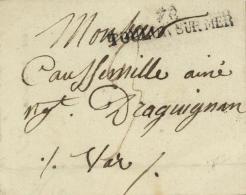 Monsieur
78
TOULON SUR MER
Caussemille ainé
negt. Draguignan
/. Var /.